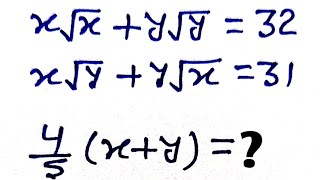 x√x + y√y = 32
x√y + y√x = 31
4/5 (x+y) = ?